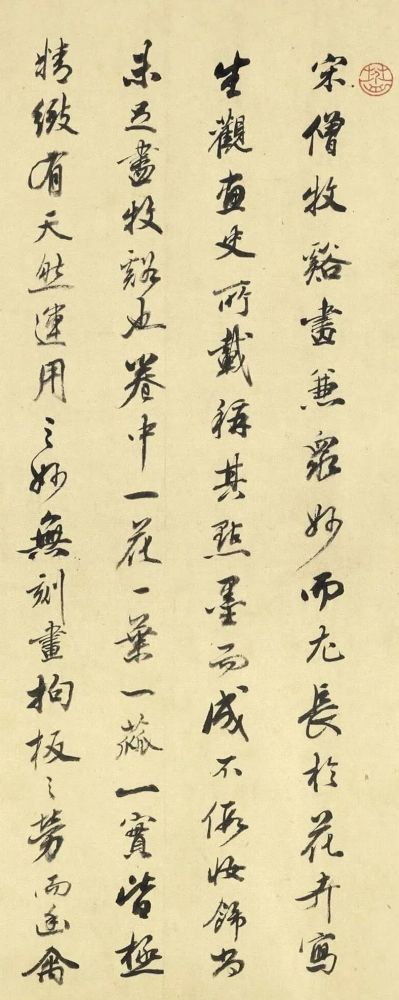 宋僧牧谿畫兼衆妙而尤長於花卉寫
生觀畫史所載稱其點墨而成不假妝飾尚
未足盡牧谿也卷中一花一葉一蓏一實皆極
精緻有天然運用之妙無刻畫拘板之勞而幽禽